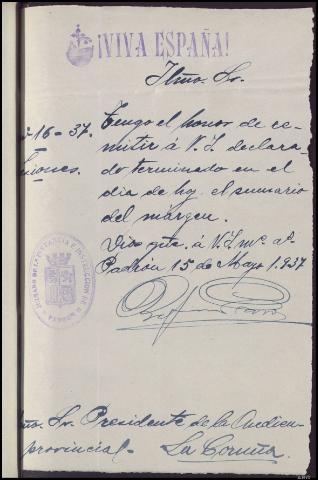 ¡VIVA ESPAÑA!
Iltmo. Sr.
-16-37.
Tengo el honor de re-
mitir á V.I. declara-
do terminado en el
siones.
día de hoy el sumario
del márgen.
Dios gde. á V.I. ms. as.
Padrón 15 de Mayo 1.937
JUZGADO DE INSTANCIA E INSTRUCCION DE PADRON
Sr. Presidente de la Audien-
provincial- La Coruña